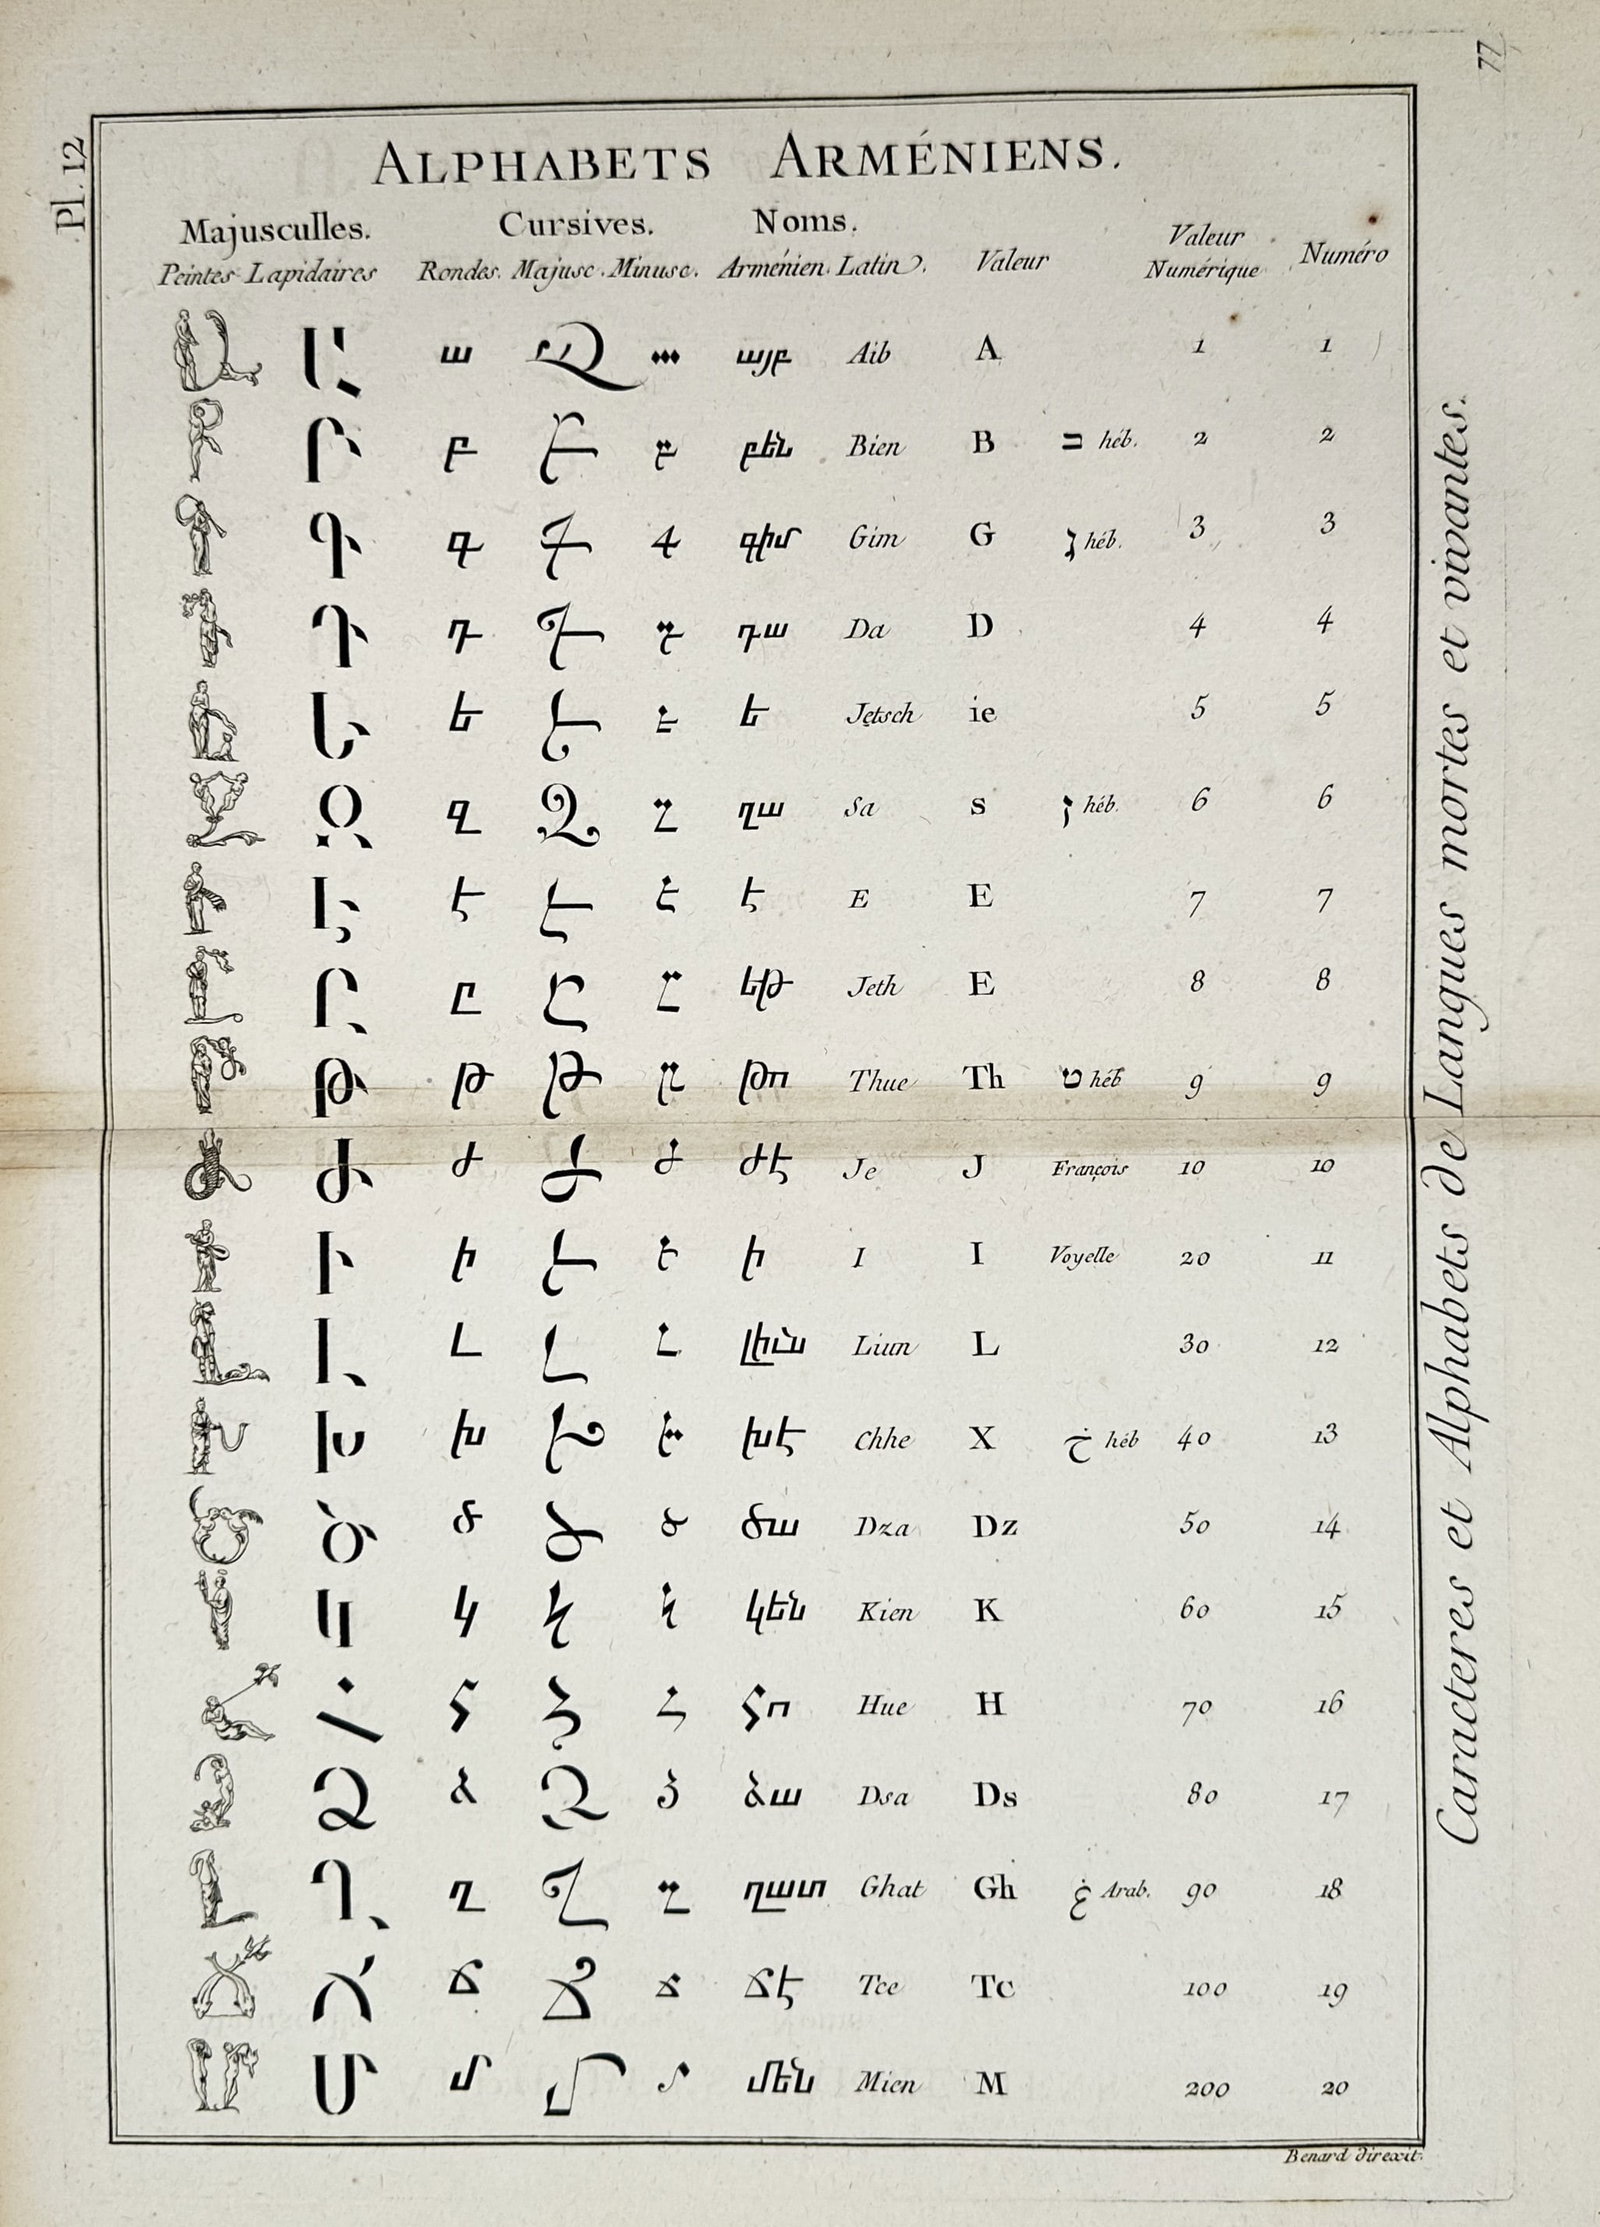 77
Pl. 12
ALPHABETS ARMÉNIENS.
Majusculles. Cursives. Noms.
Peintes Lapidaires Rondes. Majusc. Minusc. Arménien. Latin. Valeur Valeur Numérique Numéro
Ա ա այբ Aib A 1 1
Բ բ բեն Bien B ב héb. 2 2
Գ գ գիմ Gim G ג héb. 3 3
Դ դ դա Da D 4 4
Ե ե ե Jetsch ie 5 5
Զ զ ղա Sa s ז héb. 6 6
Է է է E E 7 7
Ը ը եթ Jeth E 8 8
Թ թ թո Thue Th ט héb 9 9
Ժ ժ ժէ Je J François 10 10
Ի ի ի I I Voyelle 20 11
Լ լ լիւն Liun L 30 12
Խ խ խէ Chhe X خ héb 40 13
Ծ ծ ծա Dza Dz 50 14
Կ կ կեն Kien K 60 15
Հ հ հո Hue H 70 16
Ձ ձ ձա Dsa Ds 80 17
Ղ ղ ղատ Ghat Gh غ Arab. 90 18
Ճ ճ ճէ Tce Tc 100 19
Մ մ մեն Mien M 200 20
Caracteres et Alphabets de Langues mortes et vivantes.
Benard direxit.